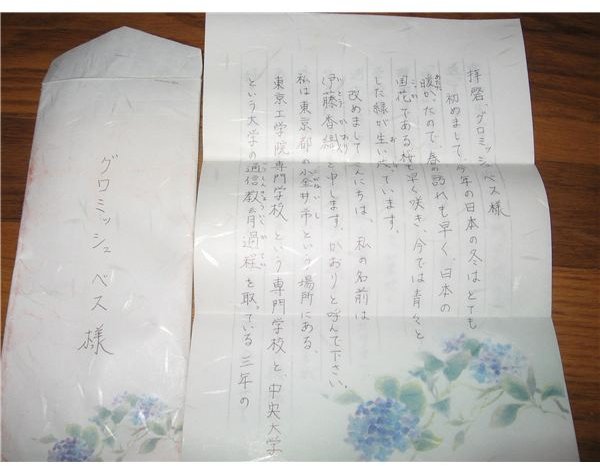 拝啓 グロミッシュ ベス様
初めまして、今年の日本の冬はとても
暖かったので、春の訪れも早く、日本の
国花である桜も早く咲き、今では青々と
した緑が生い ています。
改めましてこんにちは、私の名前は
伊藤香織と申します。かおりと呼んで下さい。
私は東京都の小金井市という場所にある、
東京工学院専門学校、という専門学校と、中央大学
という大学の通信教育過程を取っている三年の
グロミッシュ ベス 様